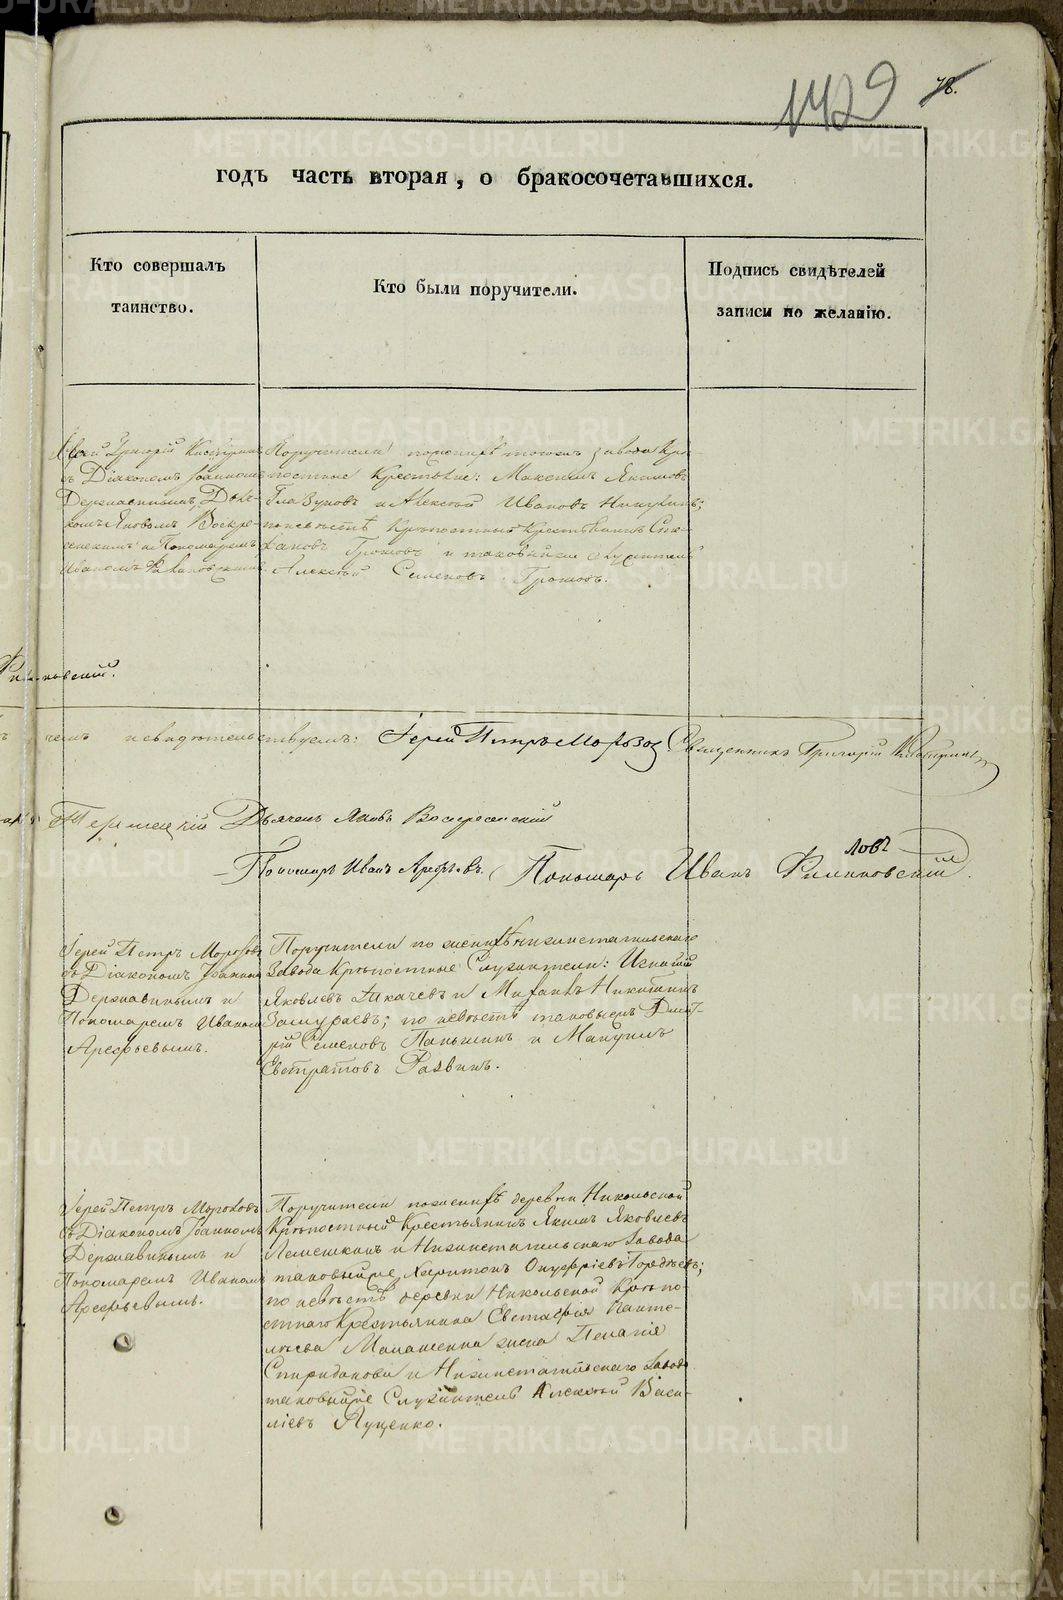 1429 78.
годъ часть вторая, о бракосочетавшихся.
Кто совершалъ
таинство.
Кто были поручители.
Подпись свидѣтелей
записи по желанію.
Іерей Григорій
съ Діакономъ Іоанномъ
Державинымъ, Дьяч-
комъ Яковомъ Воскре-
сенскимъ и Пономаремъ
Иваномъ
Поручители по женихѣ тогожъ завода Крѣ-
постные Крестьяне: Максимъ Якимовъ
Глазуновъ и Алексѣй Ивановъ Никулинъ;
по невѣстѣ Крѣпостный Крестьянинъ
Громовъ и таковыйже служитель
Алексѣй Семеновъ Громовъ.
чемъ свидѣтельствуемъ: Іерей Петръ Морозов Священникъ Григорій
Дьячекъ Яковъ Воскресенскій
Пономарь Иванъ Арефьевъ. Пономарь Иванъ Филиповскій.
ловъ
Іерей Петръ Морозовъ
съ Діакономъ Іоанномъ
Державинымъ и
Пономаремъ Иваномъ
Арефьевымъ.
Поручители по женихѣ Нижнетагильскаго
Завода Крѣпостные Служители: Игнатій
Яковлевъ Ткачевъ и Михаилъ Никитинъ
Замураевъ; по невѣстѣ таковыежъ Дмит-
рій Семеновъ Паньшинъ и Мануилъ
Евстратовъ Развинъ.
Іерей Петръ Морозовъ
съ Діакономъ Іоанномъ
Державинымъ и
Пономаремъ Иваномъ
Арефьевымъ.
Поручители по женихѣ деревни Никольской
Крѣпостный Крестьянинъ Якимъ Яковлевъ
Лемешкинъ и Нижнетагильскаго Завода
таковыйже Харитонъ Онуфріевъ Гордѣевъ;
по невѣстѣ деревни Никольской Крѣпо-
стнаго Крестьянина Евстафія Панте-
лѣева Малашенки жена Пелагія
Спиридонова и Нижнетагильскаго Завода
таковыйже Служитель Алексѣй Васи-
ліевъ Луценко.
METRIKI.GASO-URAL.RU